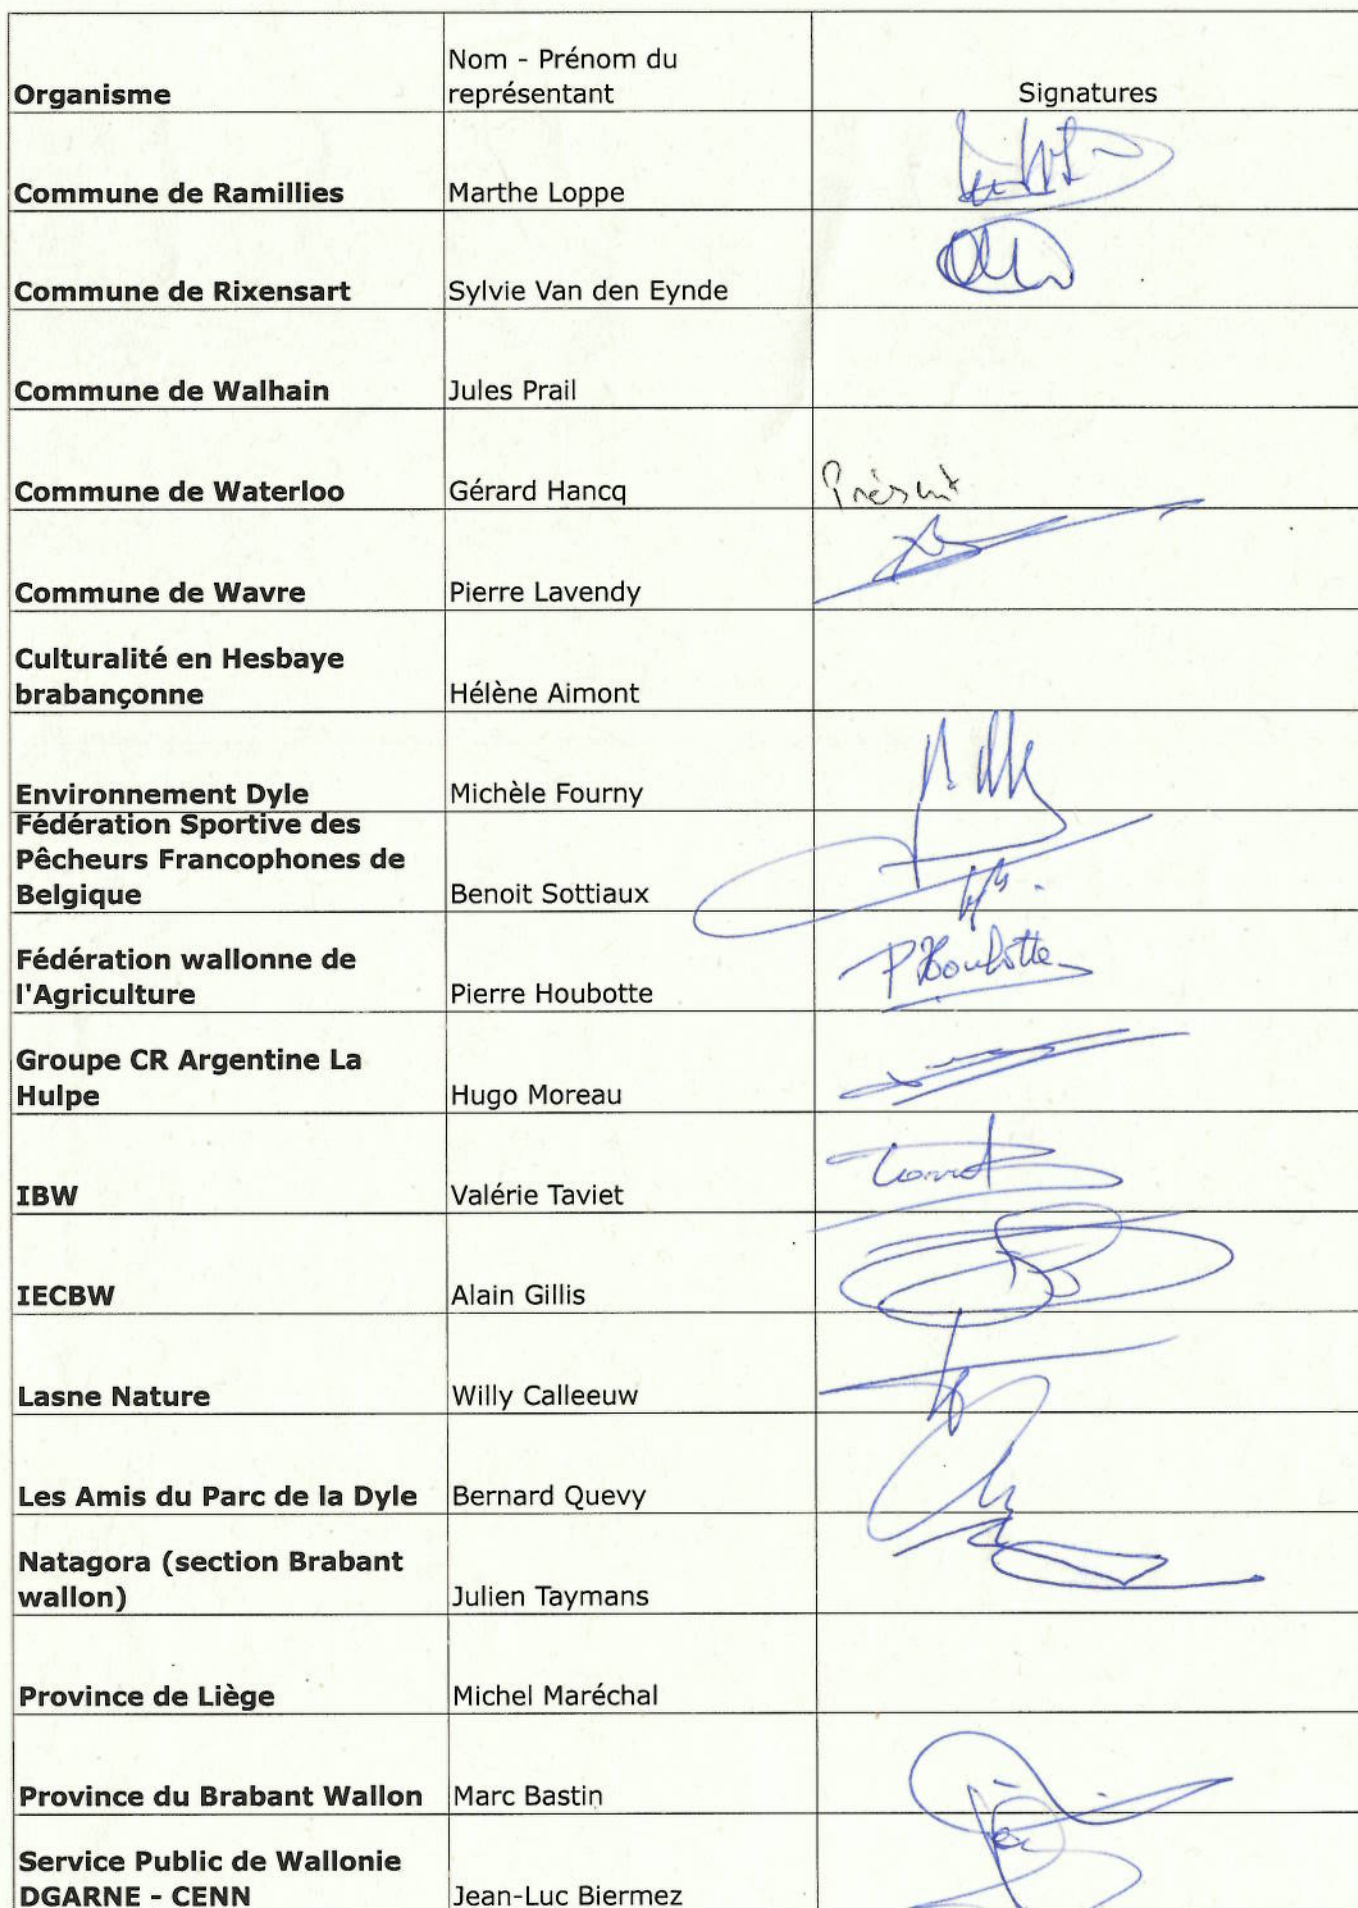 Nom - Prénom du
Organisme représentant Signatures
Commune de Ramillies Marthe Loppe
Commune de Rixensart Sylvie Van den Eynde
Commune de Walhain Jules Prail
Commune de Waterloo Gérard Hancq Présent
Commune de Wavre Pierre Lavendy
Culturalité en Hesbaye
brabançonne Hélène Aimont
Environnement Dyle Michèle Fourny
Fédération Sportive des
Pêcheurs Francophones de
Belgique Benoit Sottiaux
Fédération wallonne de
l'Agriculture Pierre Houbotte PHoubotte
Groupe CR Argentine La
Hulpe Hugo Moreau
IBW Valérie Taviet
IECBW Alain Gillis
Lasne Nature Willy Calleeuw
Les Amis du Parc de la Dyle Bernard Quevy
Natagora (section Brabant
wallon) Julien Taymans
Province de Liège Michel Maréchal
Province du Brabant Wallon Marc Bastin
Service Public de Wallonie
DGARNE - CENN Jean-Luc Biermez